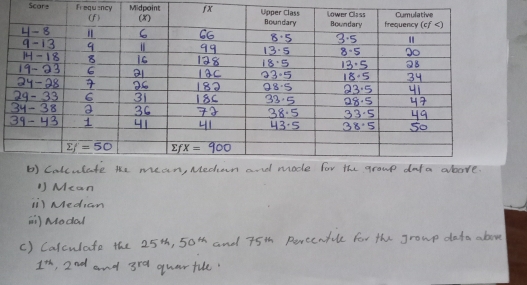 Score Frequency (f) Midpoint (X) fX Upper Class Boundary Lower Class Boundary Cumulative frequency (cf <)
4-8 11 6 66 8.5 3.5 11
9-13 9 11 99 13.5 8.5 20
14-18 8 16 128 18.5 13.5 28
19-23 6 21 126 23.5 18.5 34
24-28 7 26 182 28.5 23.5 41
29-33 6 31 186 33.5 28.5 47
34-38 2 36 72 38.5 33.5 49
39-43 1 41 41 43.5 38.5 50
Σf = 50 ΣfX = 900
b) Calculate the mean, Median and mode for the group data above.
i) Mean
ii) Median
iii) Modal
c) Calculate the 25th, 50th and 75th Percentile for the group data above
1th, 2nd and 3rd quartile.